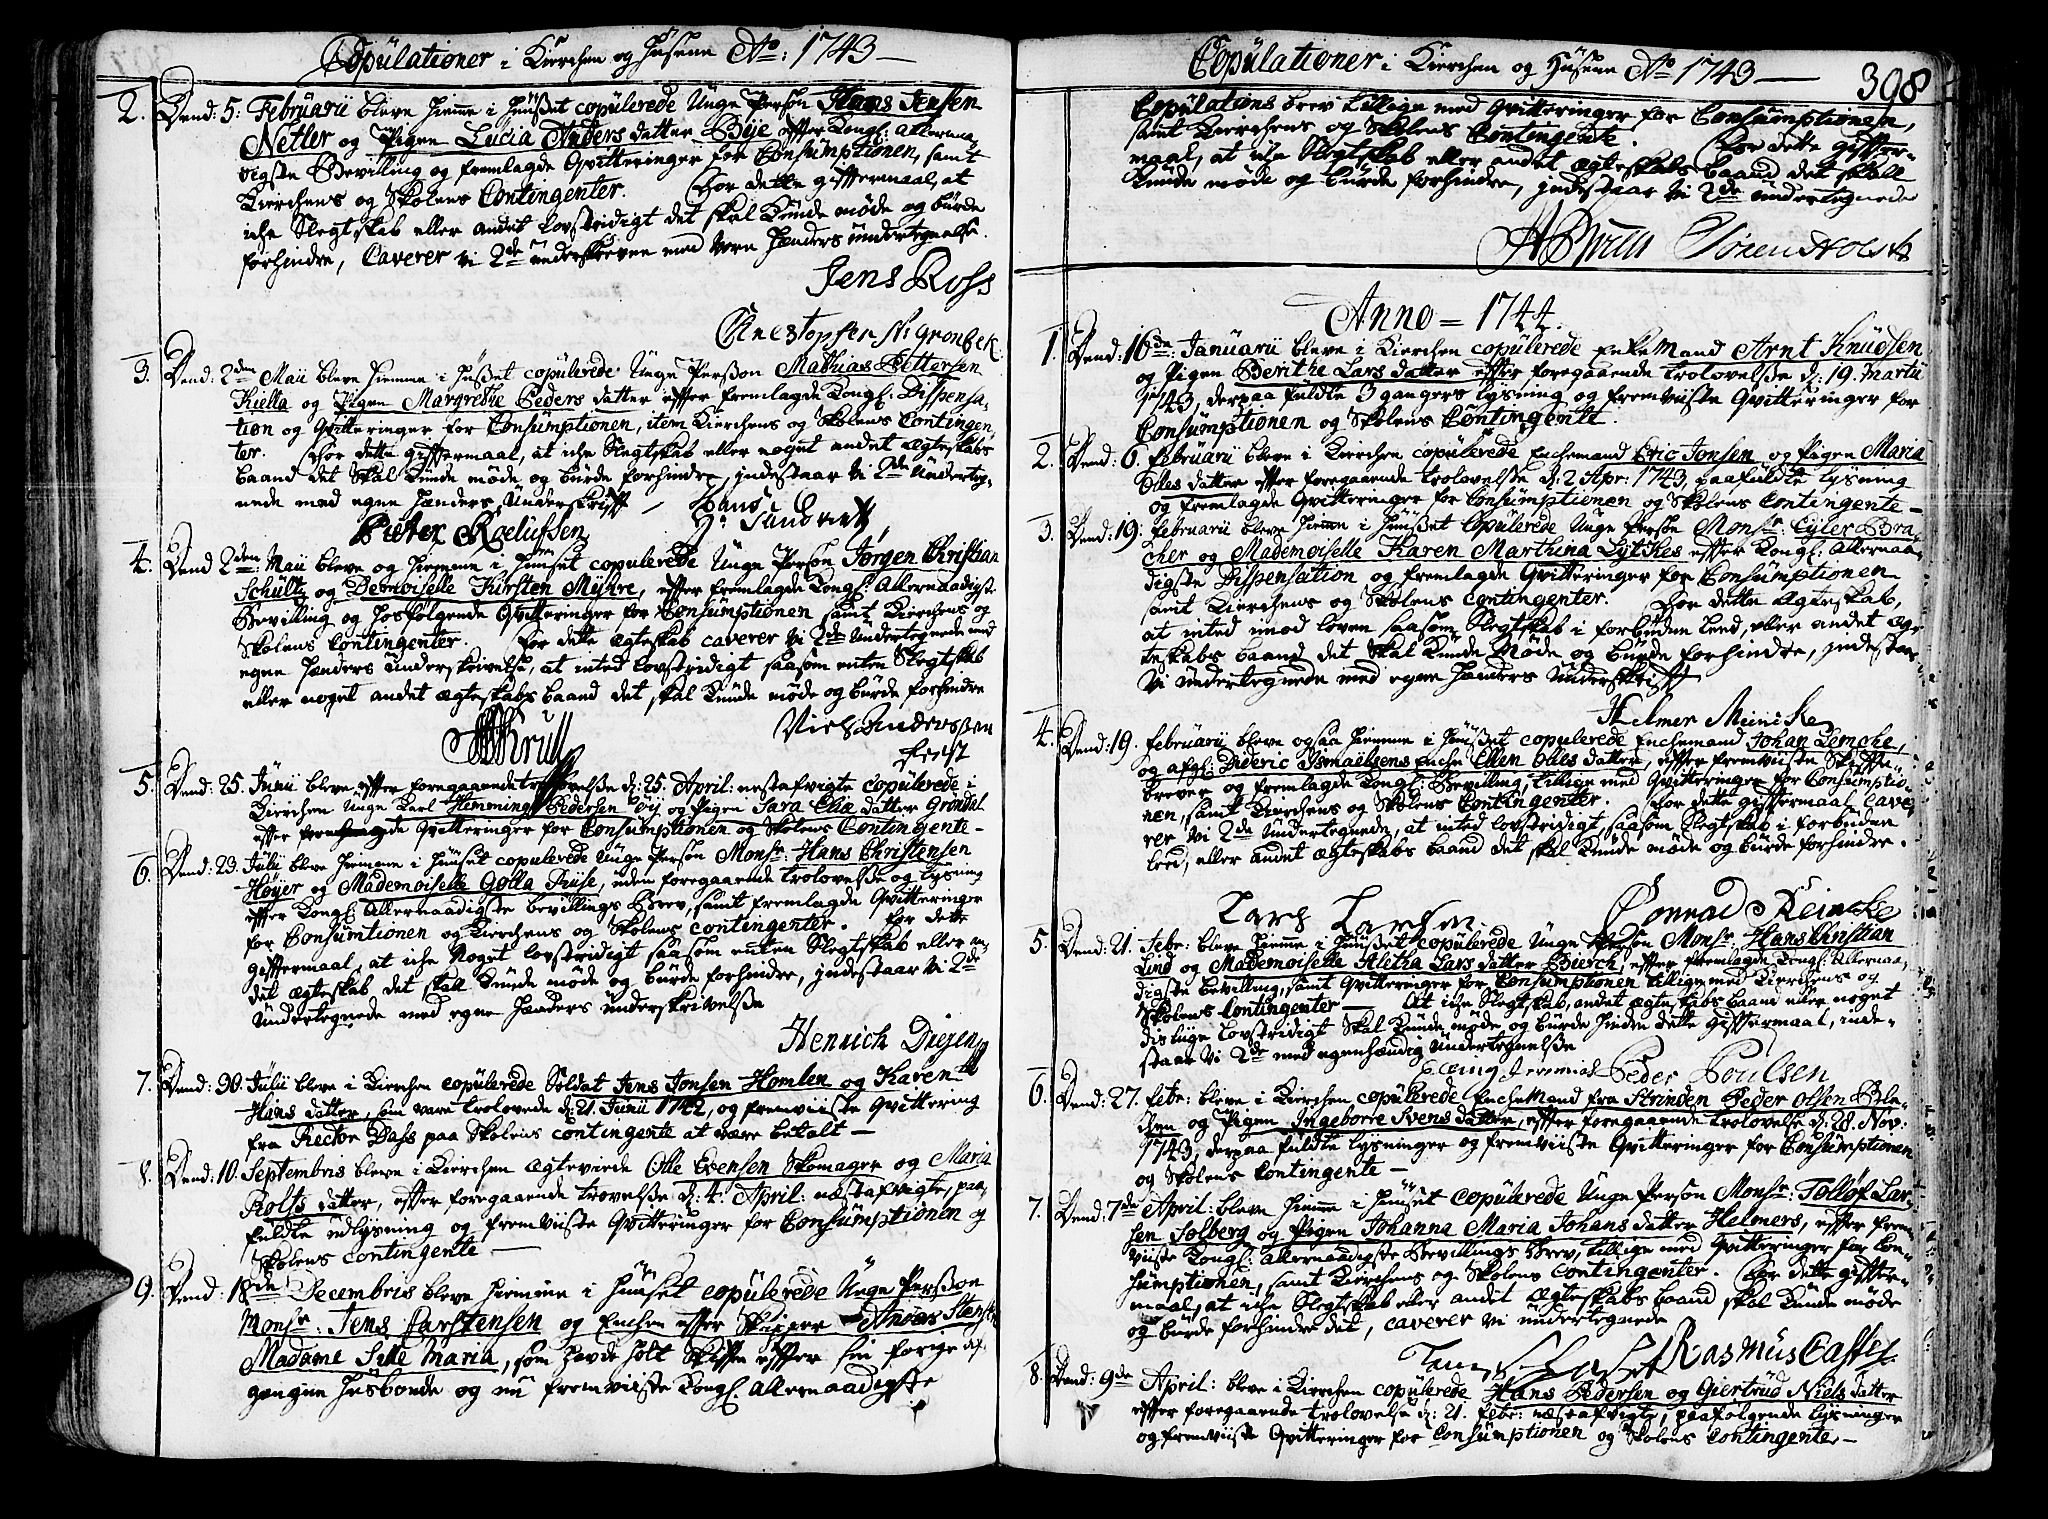 Copulationer i Kierchen og Husene Ao: 1743 —
2. Dend: 5. Februarii bleve hiemme i Huuset copulerede Unge Person Hans Jensen
Netler og Pigen Lucia Anders datter Bye effter Kongl: allernaa-
digste Bevilling og fremlagde Qvitteringer for Consumptionen, samt
Kierchens og Skolens Contingenter. For dette gifftermaal, at
iche Slegtskab eller andet lovstridigt det skal kunde møde og burde
forhindre, Caverer vi 2de underskrevne med vore Hænders undertegnelse.
Jens Ross
Christopfer Gronbek
3. Dend: 2den Maii bleve hiemme i Huuset copulerede Unge Person Mathias Pettersen
Kiella og Pigen Margrethe Peders datter effter fremlagde Kongl: Dispensa-
tion og Qvitteringer for Consumptionen, item Kierchens og Skolens Contingen-
ter. For dette gifftermaal, at iche Slegtskab eller noget andet ægteskabs
baand det skal kunde møde og burde forhindre, indestaar vi 2de Underteg-
nede med egne Hænders Underskrifft —
Pieter Roelufsen
4. Dend 2den: Maii bleve og hiemme i Huuset copulerede Unge Person Jørgen Christian
Schultz og Demoiselle Kirsten Myhre, effter fremlagde Kongl: Allernaadigste
Bevilling og hosfølgende Qvitteringer for Consumptionen samt Kierchens og
Skolens Contingenter. For dette ægteskab caverer vi 2de Undertegnede med
egne Hænders Underskrivelse, at inted lovstridigt saasom enten Slegtskab
eller noget andet ægteskabs baand det skal kunde møde og burde forhindre
Krull Niels Anderssen
5. Dend: 25. Junii bleve effter foregaaende trolovelse d: 25. April: nestafvigte copulerede i
Kierchen Unge Karl Hemming Pedersen Øy og Pigen Sara Elia datter Grøndal
effter fremlagde Qvitteringer for Consumptionen og Skolens Contingente —
6. Dend: 23. Julii bleve hiemme i Huuset copulerede Unge Person Monsr: Hans Christensen
Høyer og Mademoiselle Golla Friise, uden foregaaende trolovelse og lysning
effter Kongl: Allernaadigste bevillings Brev, samt fremlagde Qvitteringer
for Consumtionen og Kierchens og Skolens contingenter. For dette
gifftermaal, at iche noget lovstridigt saasom enten Slegtskab eller an-
det ægteskab det skall kunde møde og burde forhindre, indestaar vi 2de
Undertegnede med egne Hænders underskrivelse
Henrich
7. Dend: 30. Julii bleve i Kierchen copulerede Soldat Jens Jonsen Homlen og Karen
Hans datter, som vare trolovede d: 21. Junii 1742, og fremviiste Qvittering
fra Rector Dass paa Skolens contingente at være betalt —
8. Dend: 10. Septembris bleve i Kierchen ægteviede Olle Evensen Skomager og Maria
Rolfs datter, effter foregaaende trolovelse d: 4. April: næstafvigte, paa-
fuldte udlysning og fremviiste Qvitteringer for Consumptionen og
Skolens contingente —
9. Dend: 18de Decembris bleve hiemme i Huuset copulerede Unge Persson
Monsr: Jens Carstensen og Enchen effter Skipper Andreas
Madame Sille Maria, som havde holt Skiffte effter sin forige af-
gangne Husbonde og nu fremviiste Kongl: Allernaadigste
Copulationer i Kierchen og Husene Ao 1743 — 398
Copulations brev tillige med Qvitteringer for Consumptionen,
samt Kierchens og Skolens Contingente. For dette giffter-
maal, at iche Slegtskab eller andet ægteskabs baand det skall
kunde møde og burde forhindre, indestaar vi 2de undertegnede
Søren Holst
Anno = 1744.
1. Dend: 16de: Januarii bleve i Kierchen copulerede Enkemand Arnt Knudsen
og Pigen Berithe Lars datter effter foregaaende trolovelse d: 19. Martii
1743, derpaa fuldte 3 gangers lysning og fremviiste Qvitteringer for
Consumptionen og Skolens Contingente.
2. Dend: 6. Februarii bleve i Kierchen copulerede Enchemand Eric Jonsen og Pigen Maria
Olles datter effter foregaaende trolovelse d: 2 Apr: 1743, paafuldte lysning
og fremlagde Qvitteringer for Consumptionen og Skolens Contingente —
3. Dend: 19: Februarii bleve hiemme i Huuset Copulerede Unge Person Monsr: Eyler Bra-
cher og Mademoiselle Karen Marthina Lytkes effter Kongl: Allernaa-
digste Dispensation og fremlagde Qvitteringer for Consumptionen
samt Kierchens og Skolens contingenter. For dette Ægteskab,
at inted imod loven saasom Slegtskab i forbuden Leed, eller andet æg-
teskabs baand det skal kunde møde og burde forhindre, indestaar
vi Undertegnede med egne Hænders Underskrifft
Helmer Meincke
4. Dend: 19. Februarii bleve ogsaa hiemme i Huuset copulerede Enchemand Johan Lemche,
og afgl: Dideric Ismaelsens Enche Ellen Olles datter, effter fremviiste Skiffte-
brever og fremlagde Kongl: Bevilling, tillige med Qvitteringer for Consumptio-
nen, samt Kierchens og Skolens Contingenter. For dette gifftermaal cave-
rer vi 2de Undertegnede, at inted lovstridigt, saasom Slegtskab i forbuden
leed, eller andet ægteskabs baand det skal kunde møde og burde forhindre.
Lars Larsen Conrad Reincke
5. Dend: 21. Febr: bleve hiemme i Huuset copulerede Unge Person Monsr: Hans Christian
Lind og Mademoiselle Aletha Lars datter Bierch, effter fremlagde Kongl: Allernaa-
digste bevilling, samt Qvitteringer for Consumptionen tillige med Kierchens og
Skolens Contingenter — At iche Slegtskab, andet ægteskabs baand eller noget
deslige lovstridigt skal kunde møde og burde hindre dette gifftermaal, inde-
staar vi 2de med egenhændig Undertegnelse
Peder Poulsen
6. Dend: 27. Febr: bleve i Kierchen copulerede Enchemand fra Strinden Peder Olsen Ble-
og Pigen Ingeborre Svens datter, effter foregaaende trolovelse d: 28. Nov:
1743, derpaa fuldte lysninger og fremviiste Qvitteringer for Consumptionen
og Skolens Contingente —
7. Dend: 7de April: bleve hiemme i Huuset copulerede Unge Person Monsr: Tolløf Lar-
sen Solberg og Pigen Johanna Maria Johans datter Helmers, effter frem-
viiste Kongl: allernaadigste Bevillings Brev, tillige med Qvitteringer for Con-
sumptionen, samt Kierchens og Skolens contingenter. For dette giffter-
maal, at iche Slegtskab eller andet Ægteskabs baand skal kunde møde
og burde forhindre det, caverer vi undertegnede
Rasmus
8. Dend: 9de April: bleve i Kierchen copulerede Hans Pedersen og Giertrud Niels datter
effter foregaaende trolovelse d: 21. Febr: næstafvigte, paafølgende lysninger
og fremviiste Qvitteringer for Consumptionen og Skolens Contingente —